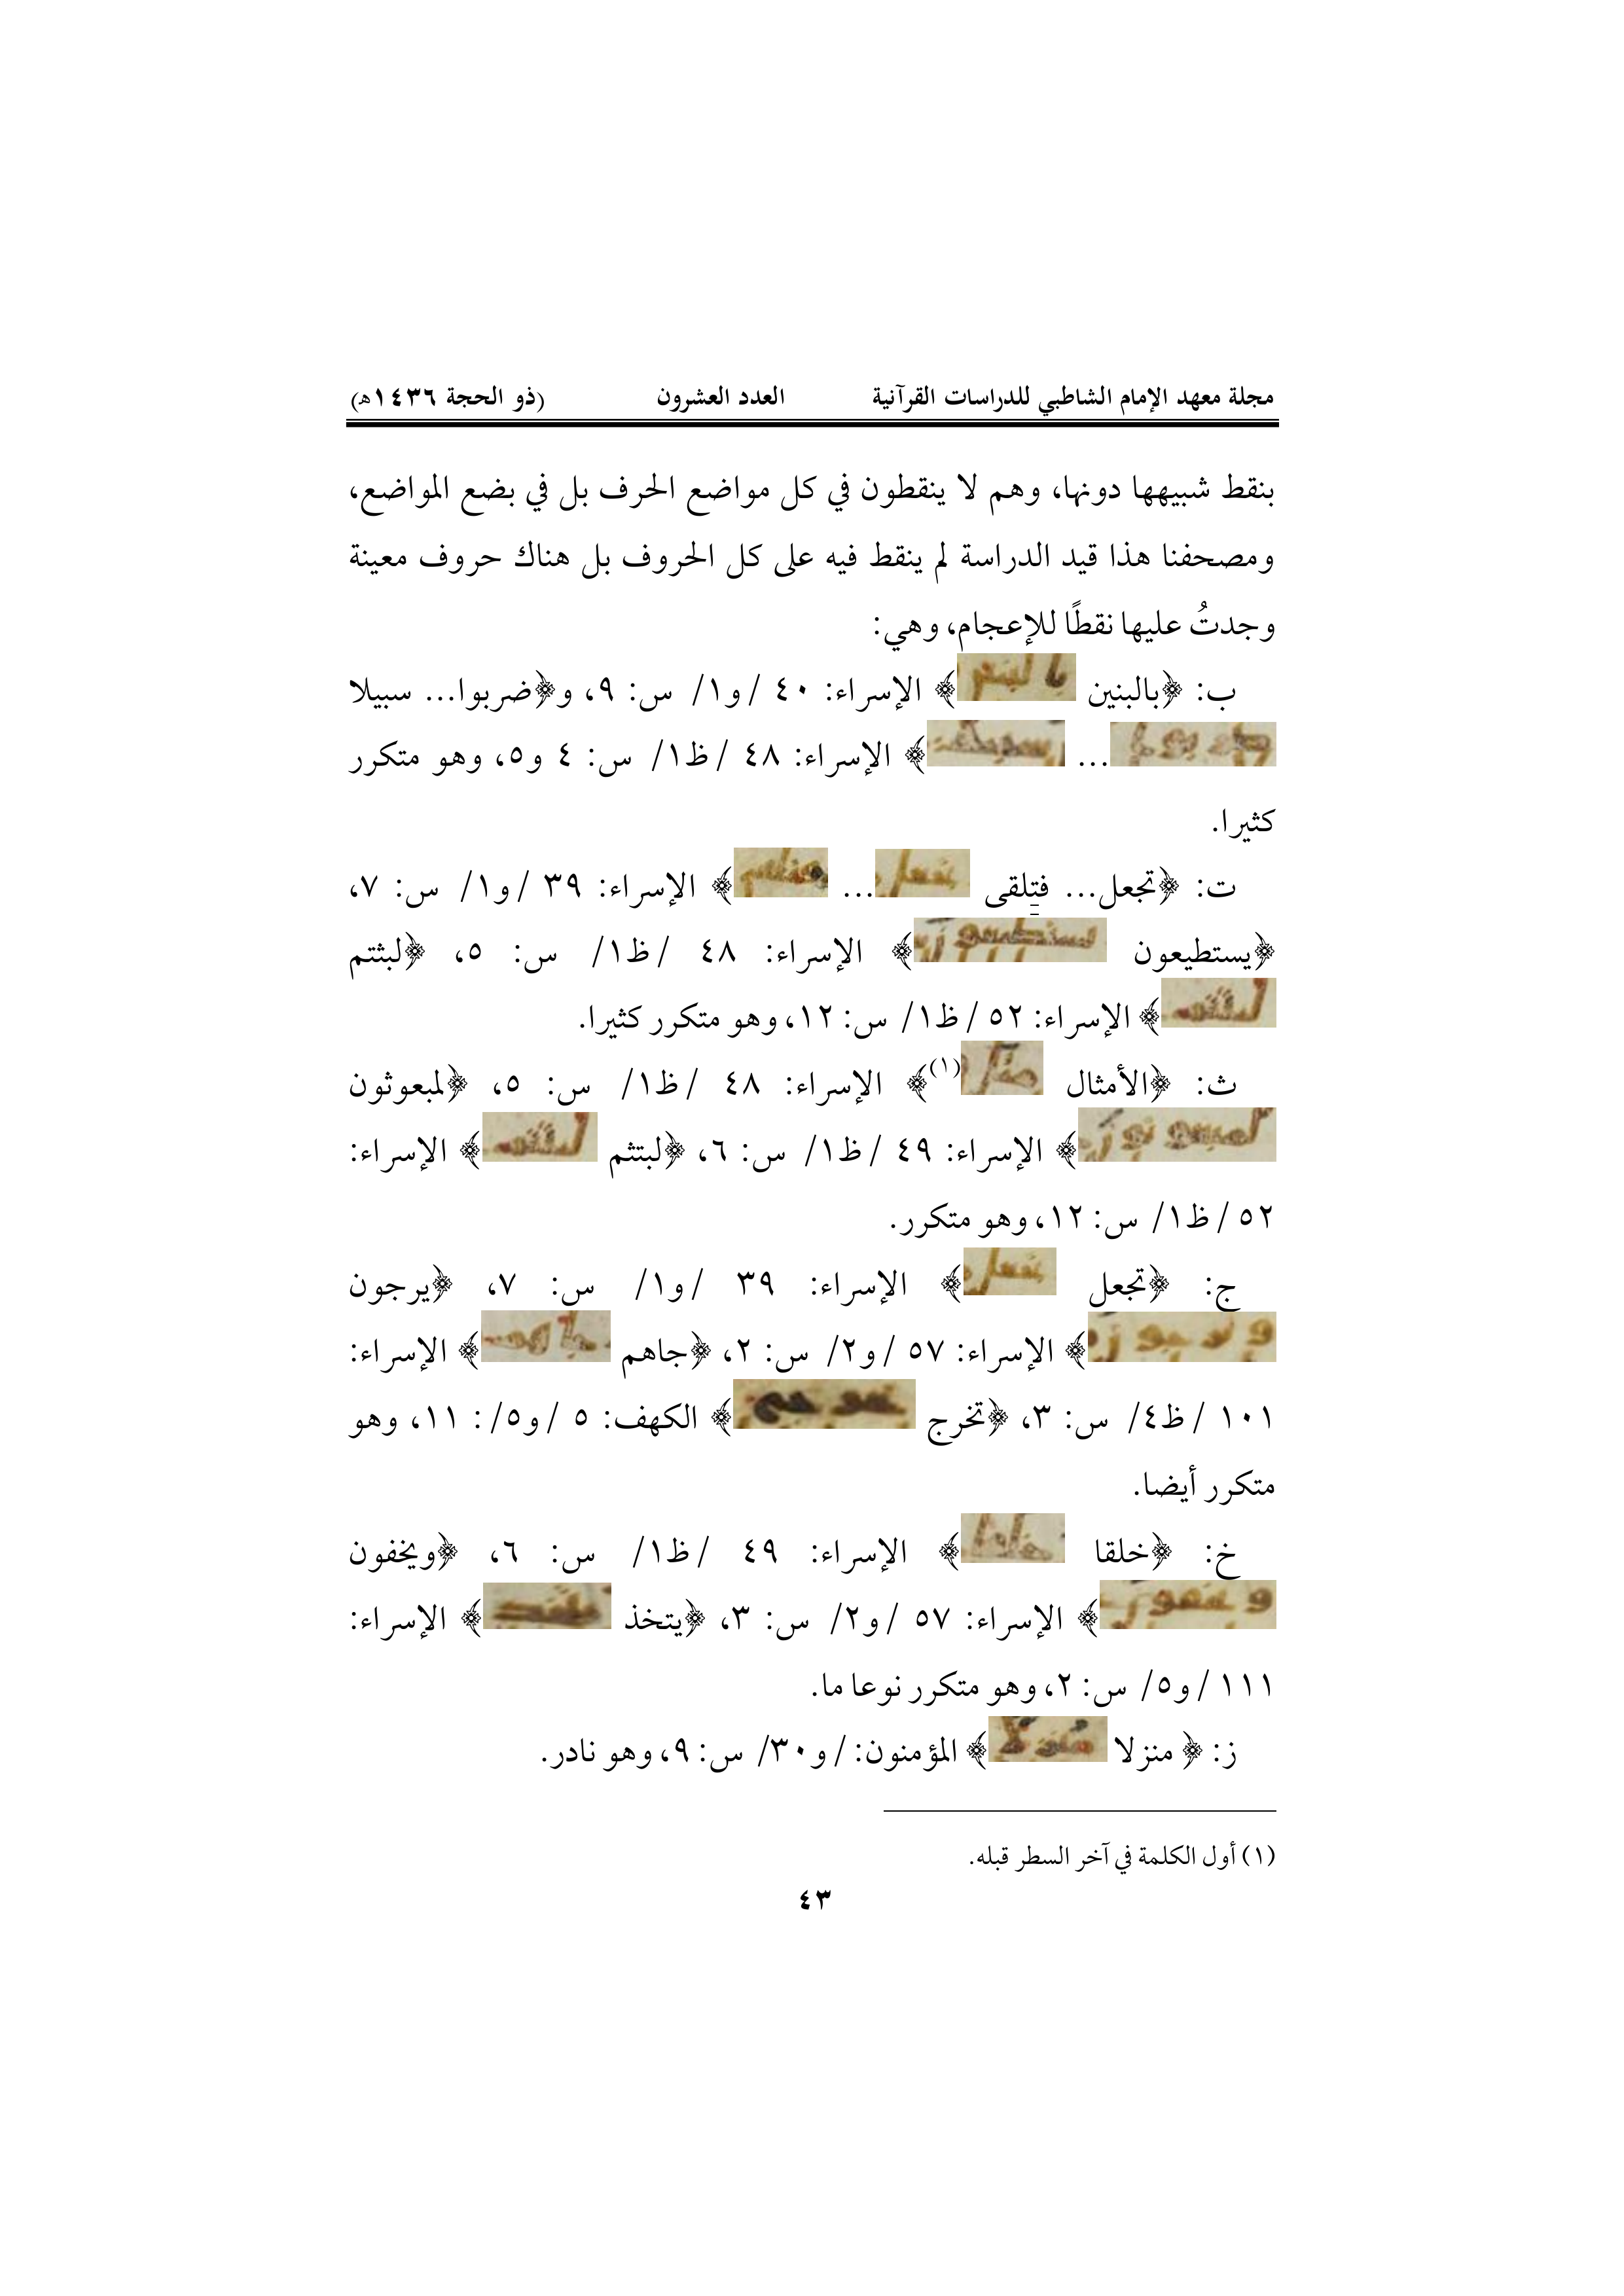 مجلة معهد الإمام الشاطبي للدراسات القرآنية العدد العشرون (ذو الحجة ١٤٣٦هـ)
بنقط شبيهها دونها، وهم لا ينقطون في كل مواضع الحرف بل في بضع المواضع،
ومصحفنا هذا قيد الدراسة لم ينقط فيه على كل الحروف بل هناك حروف معينة
وجدتُ عليها نقطًا للإعجام، وهي:
ب: ﴿بالبنين ﴾ الإسراء: ٤٠ /و١/ س: ٩، و﴿ضربوا... سبيلا
... ﴾ الإسراء: ٤٨ /ظ١/ س: ٤ و٥، وهو متكرر
كثيرا.
ت: ﴿تجعل... فتلقى ... ﴾ الإسراء: ٣٩ /و١/ س: ٧،
﴿يستطيعون ﴾ الإسراء: ٤٨ /ظ١/ س: ٥، ﴿لبثتم
﴾ الإسراء: ٥٢ /ظ١/ س: ١٢، وهو متكرر كثيرا.
ث: ﴿الأمثال (١)﴾ الإسراء: ٤٨ /ظ١/ س: ٥، ﴿لمبعوثون
﴾ الإسراء: ٤٩ /ظ١/ س: ٦، ﴿لبتثم ﴾ الإسراء:
٥٢ /ظ١/ س: ١٢، وهو متكرر.
ج: ﴿تجعل ﴾ الإسراء: ٣٩ /و١/ س: ٧، ﴿يرجون
﴾ الإسراء: ٥٧ /و٢/ س: ٢، ﴿جاهم ﴾ الإسراء:
١٠١ /ظ٤/ س: ٣، ﴿تخرج ﴾ الكهف: ٥ /و٥/: ١١، وهو
متكرر أيضا.
خ: ﴿خلقا ﴾ الإسراء: ٤٩ /ظ١/ س: ٦، ﴿ويخفون
﴾ الإسراء: ٥٧ /و٢/ س: ٣، ﴿يتخذ ﴾ الإسراء:
١١١ /و٥/ س: ٢، وهو متكرر نوعا ما.
ز: ﴿ منزلا ﴾ المؤمنون: /و٣٠/ س: ٩، وهو نادر.
(١) أول الكلمة في آخر السطر قبله.
٤٣